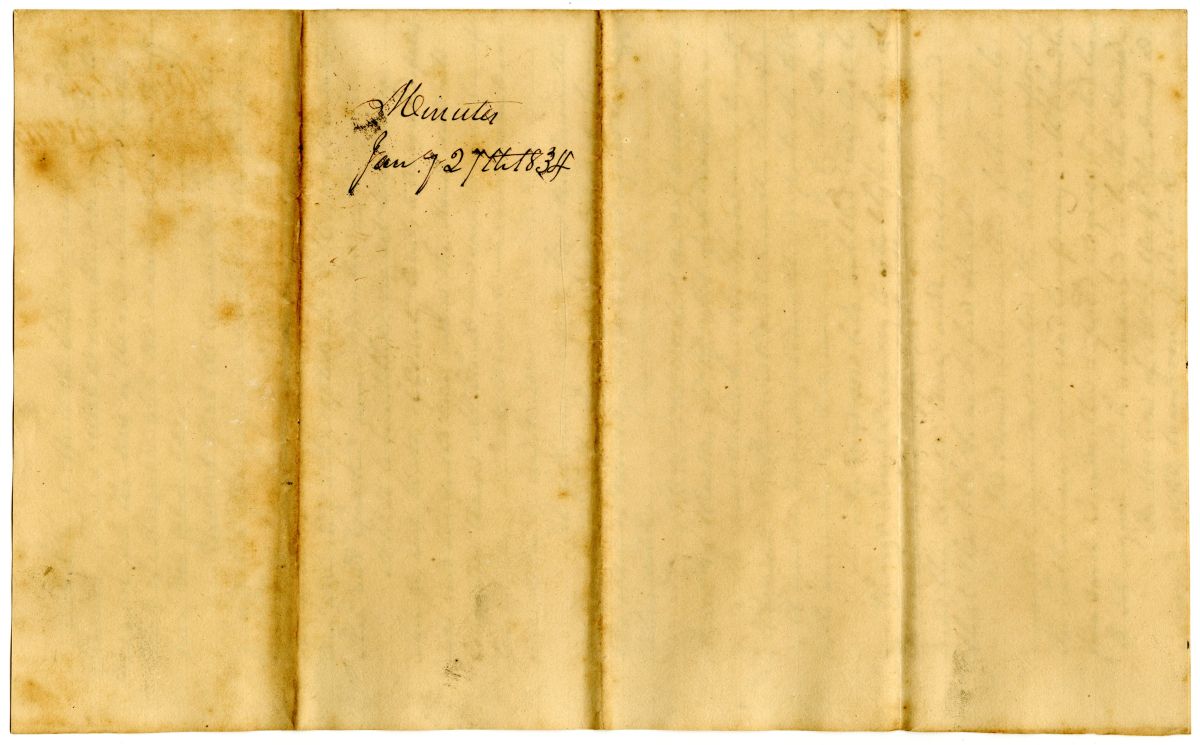 Minutes
Jany 27th 1834